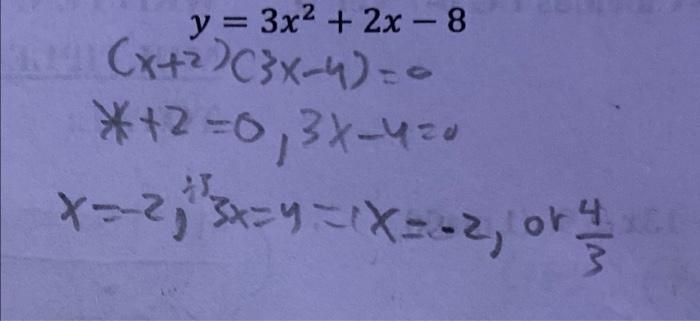 y = 3x² + 2x − 8
(x+2)(3x-4)=0
x+2=0, 3x-4=0
x=-2, ÷3 3x=4 = x=-2, or 4/3